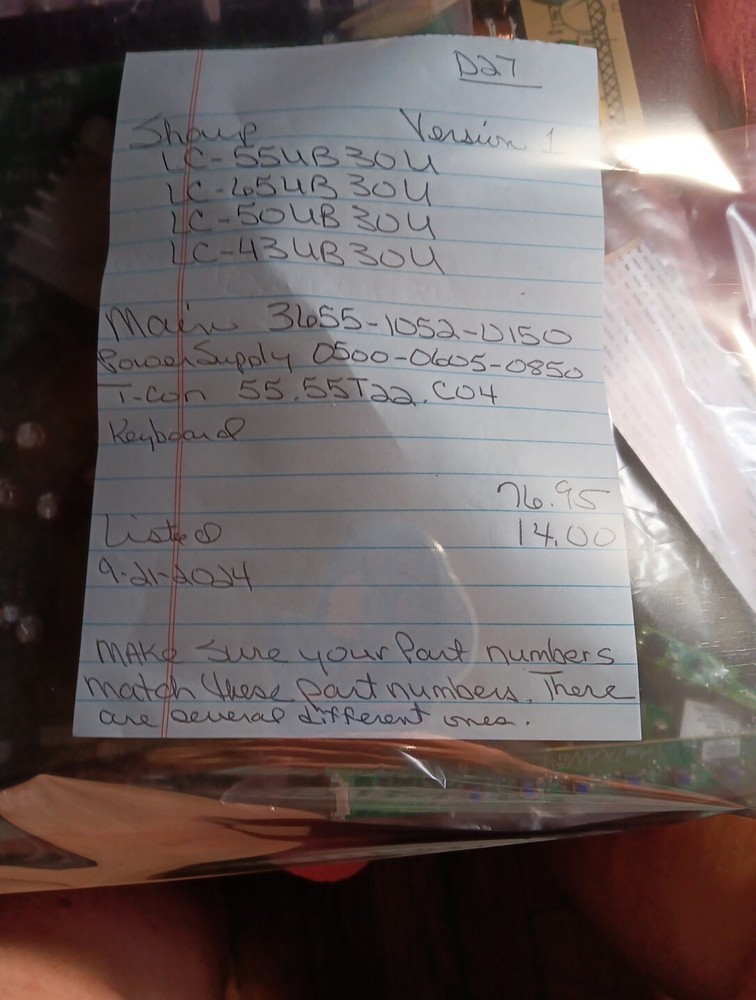 D27
Sharp Version 1
LC-55UB30U
LC-65UB30U
LC-50UB30U
LC-43UB30U
Main 3655-1052-0150
Power Supply 0500-0605-0850
T-con 55.55T22.C04
Keyboard
76.95
Listed 14.00
9-21-2024
MAKe Sure your Part numbers
match these part numbers. There
are several different ones.